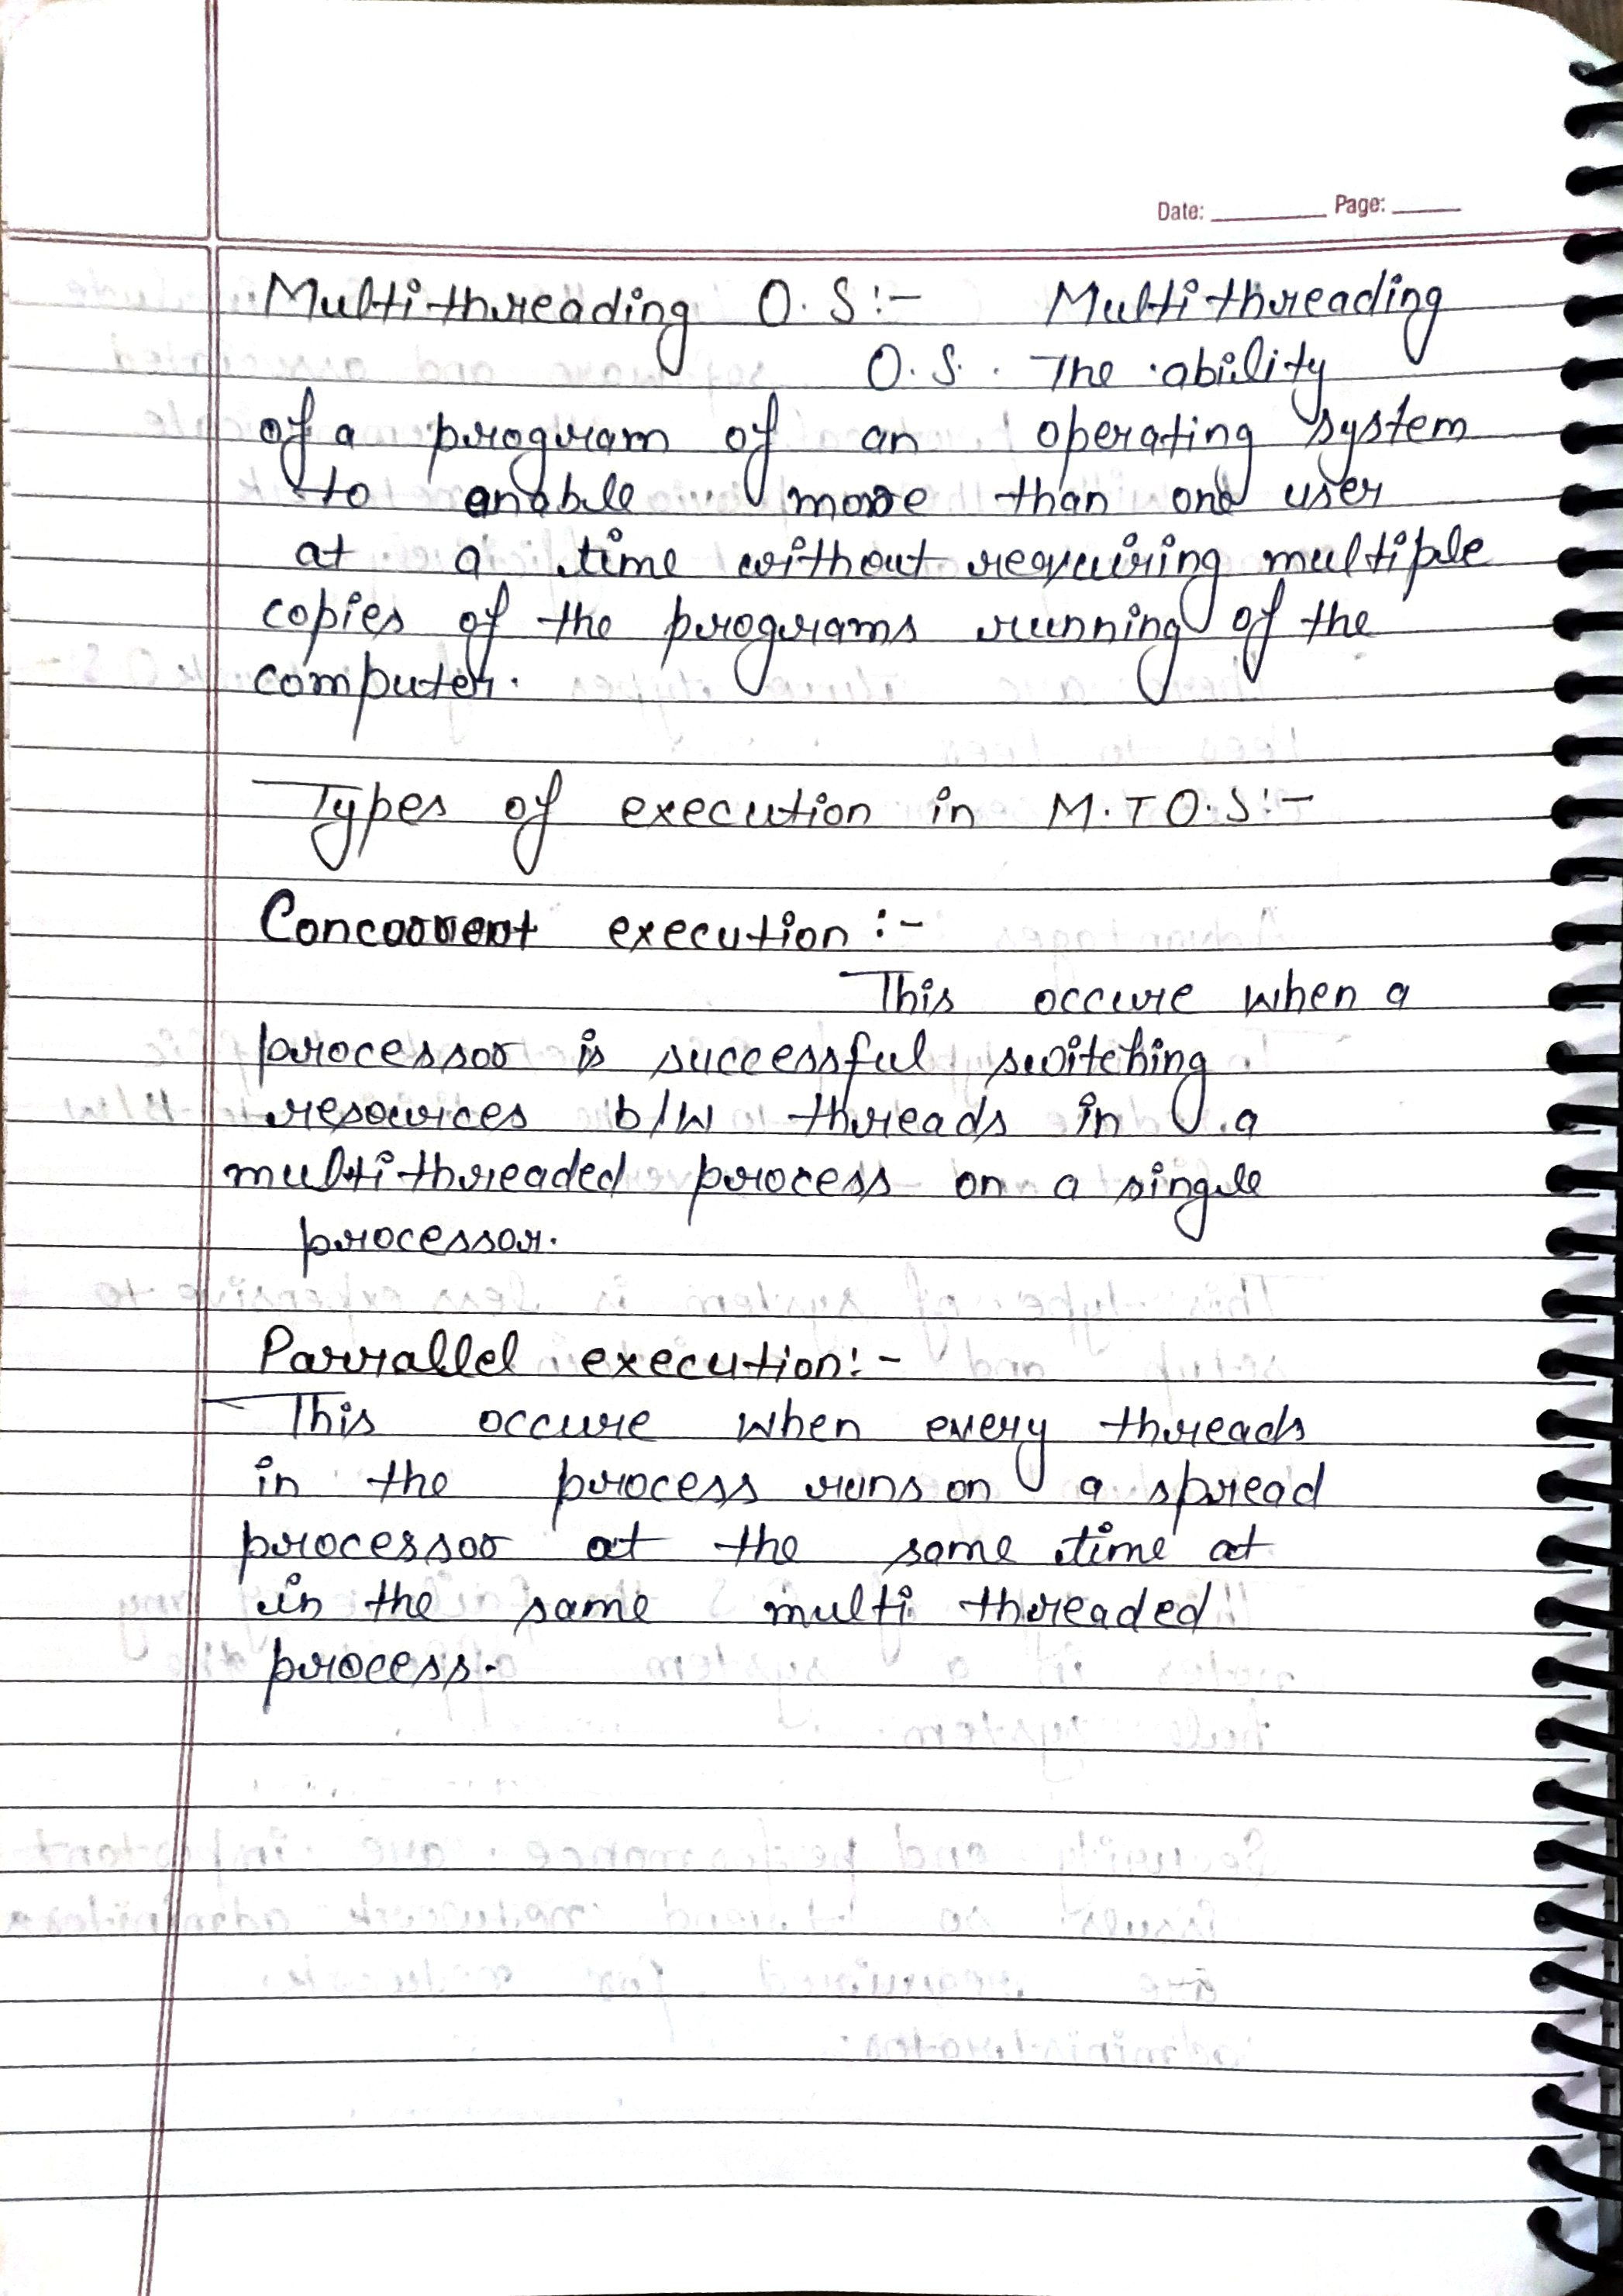 Date: Page:
Multithreading O.S:- Multithreading
O.S. The ability
of a program of an operating system
to enable more than one user
at a time without requiring multiple
copies of the programs running of the
computer.
Types of execution in M.TO.S:-
Concorrent execution :-
This occure when a
processor is successful switching
resources b/w threads in a
multithreaded process on a single
processor.
Parrallel execution:-
This occure when every threads
in the process runs on a spread
processor at the same time at
in the same multi threaded
process.